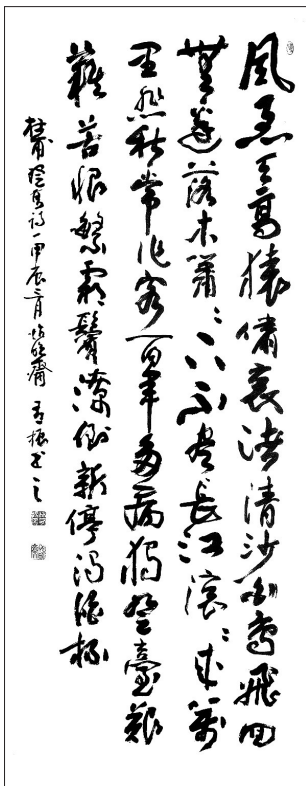 風急天高猿嘯哀渚清沙白鳥飛回
無邊落木蕭〻下不盡長江滾〻來萬
里悲秋常作客百年多病獨登臺艱
難苦恨繁霜鬢潦倒新停濁酒杯
杜甫登高詩一甲辰月齋振书之